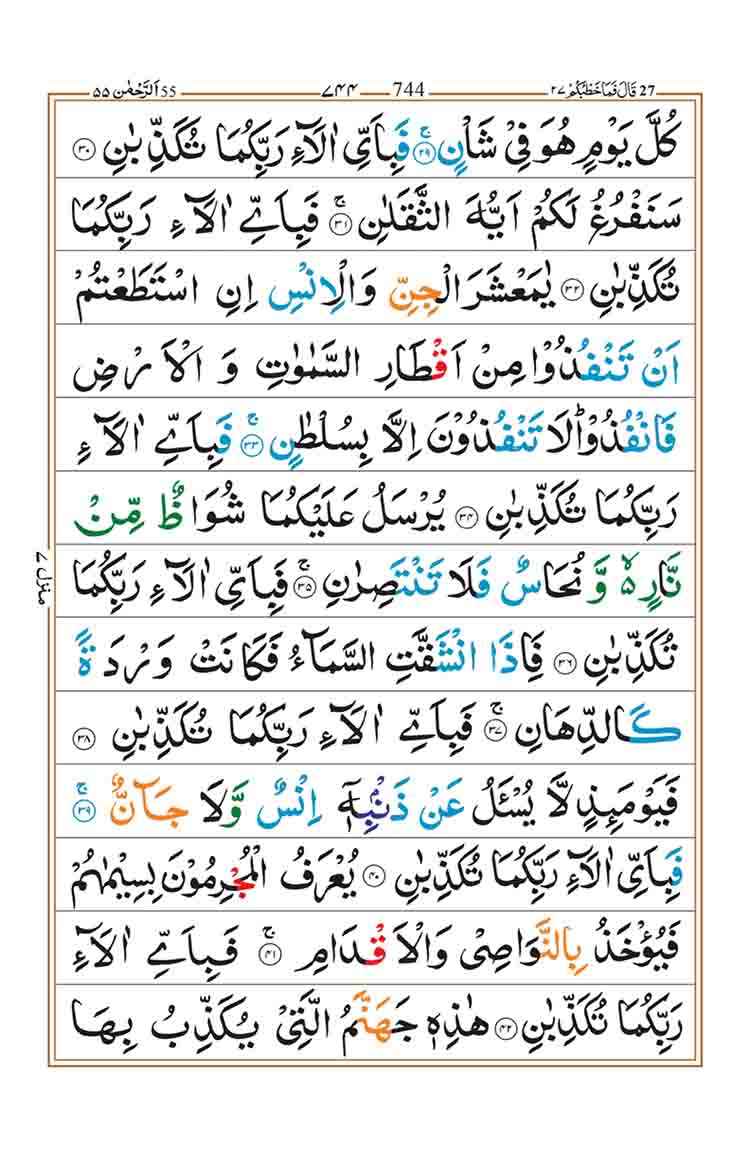 27 قَالَ فَمَا خَطْبُكُمْ ٢٧ 744 ٧٤٤ 55 اَلرَّحْمٰن ٥٥
كُلَّ يَوْمٍ هُوَ فِيْ شَاْنٍ ۚ‏﴿۲۹﴾ فَبِاَيِّ اٰلَآءِ رَبِّكُمَا تُكَذِّبٰنِ ﴿۳۰﴾
سَنَفْرُغُ لَكُمْ اَيُّهَ الثَّقَلٰنِ ۚ‏﴿۳۱﴾ فَبِاَيِّ اٰلَآءِ رَبِّكُمَا
تُكَذِّبٰنِ ﴿۳۲﴾ يٰمَعْشَرَ الْجِنِّ وَالْاِنْسِ اِنِ اسْتَطَعْتُمْ
اَنْ تَنْفُذُوْا مِنْ اَقْطَارِ السَّمٰوٰتِ وَ الْاَرْضِ
فَانْفُذُوْا ؕ لَا تَنْفُذُوْنَ اِلَّا بِسُلْطٰنٍ ۚ‏﴿۳۳﴾ فَبِاَيِّ اٰلَآءِ
رَبِّكُمَا تُكَذِّبٰنِ ﴿۳۴﴾ يُرْسَلُ عَلَيْكُمَا شُوَاظٌ مِّنْ
نَّارٍ ۙ۬ وَّ نُحَاسٌ فَلَا تَنْتَصِرٰنِ ۚ‏﴿۳۵﴾ فَبِاَيِّ اٰلَآءِ رَبِّكُمَا
تُكَذِّبٰنِ ﴿۳۶﴾ فَاِذَا انْشَقَّتِ السَّمَآءُ فَكَانَتْ وَرْدَةً
كَالدِّهَانِ ۚ‏﴿۳۷﴾ فَبِاَيِّ اٰلَآءِ رَبِّكُمَا تُكَذِّبٰنِ ﴿۳۸﴾
فَيَوْمَئِذٍ لَّا يُسْـَٔلُ عَنْ ذَنْۢبِهٖۤ اِنْسٌ وَّلَا جَآنٌّ ۚ‏﴿۳۹﴾
فَبِاَيِّ اٰلَآءِ رَبِّكُمَا تُكَذِّبٰنِ ﴿۴۰﴾ يُعْرَفُ الْمُجْرِمُوْنَ بِسِيْمٰهُمْ
فَيُؤْخَذُ بِالنَّوَاصِيْ وَالْاَقْدَامِ ۚ‏﴿۴۱﴾ فَبِاَيِّ اٰلَآءِ
رَبِّكُمَا تُكَذِّبٰنِ ﴿۴۲﴾ هٰذِهٖ جَهَنَّمُ الَّتِيْ يُكَذِّبُ بِهَا
منزل ٧